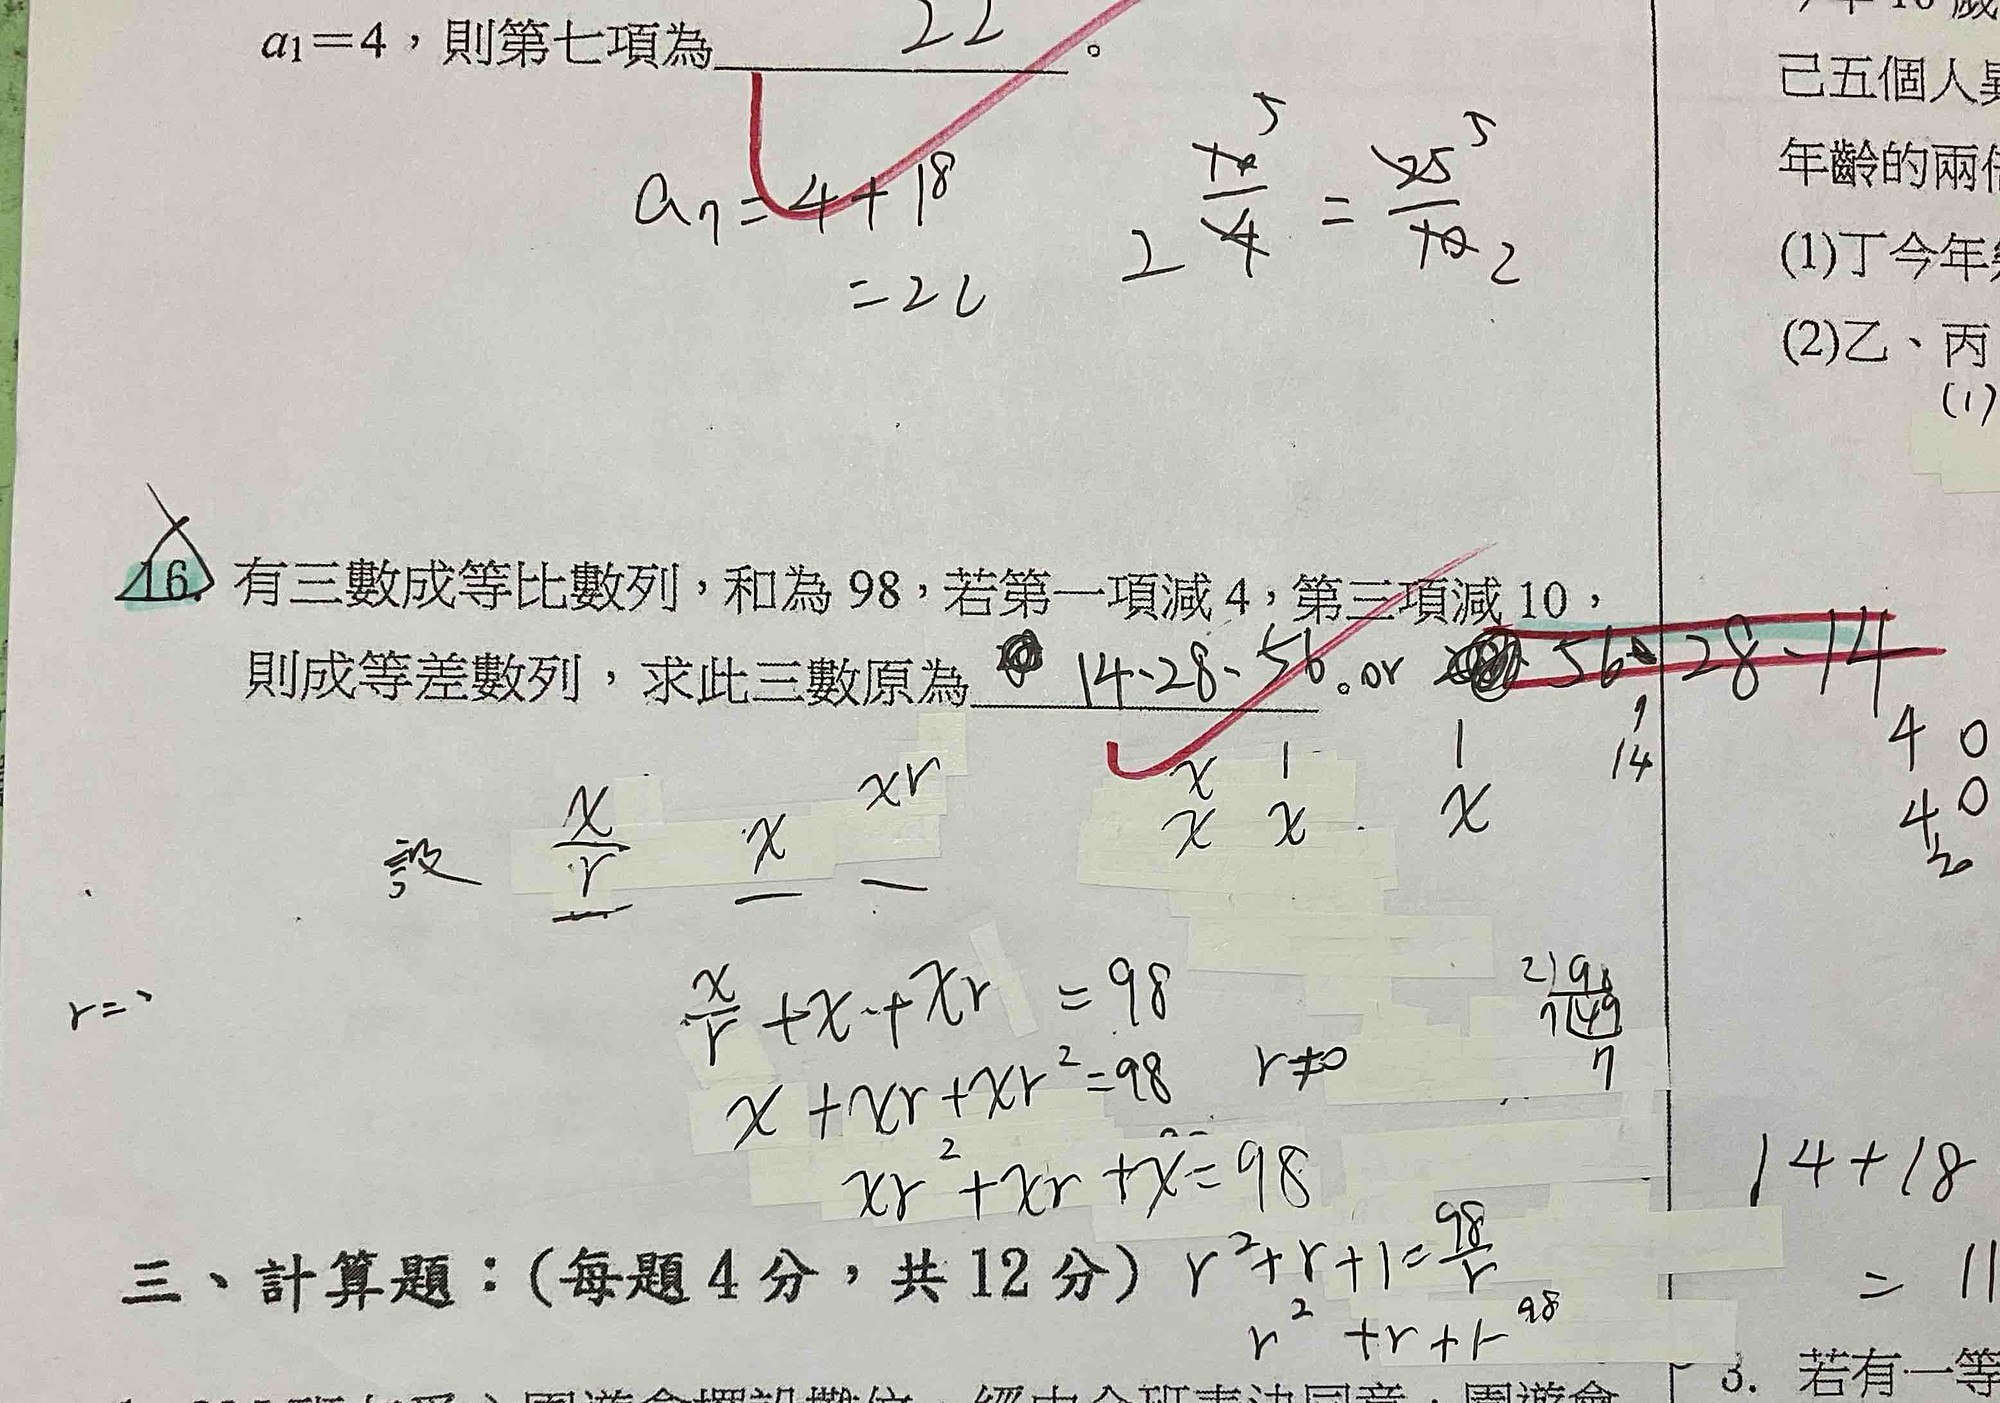 a₁=4,則第七項為 22 。
a₇=4+18
=22
5 5
10/4 = 25/10
2 2
16. 有三數成等比數列,和為 98,若第一項減 4,第三項減 10,
則成等差數列,求此三數原為 14、28、56。or 56、28、14
設 x/r x xr
x 1 1
x x x
14
r=
x/r + x + xr = 98
x + xr + xr² = 98 r≠0
xr² + xr + x = 98
2)98
7)49
7
三、計算題:(每題 4 分,共 12 分) r²+r+1=98/r
r² +r+1- 98
己五個人
年齡的兩
(1)丁今年
(2)乙、丙
(1)
40
40
14+18
= 11
3. 若有一等